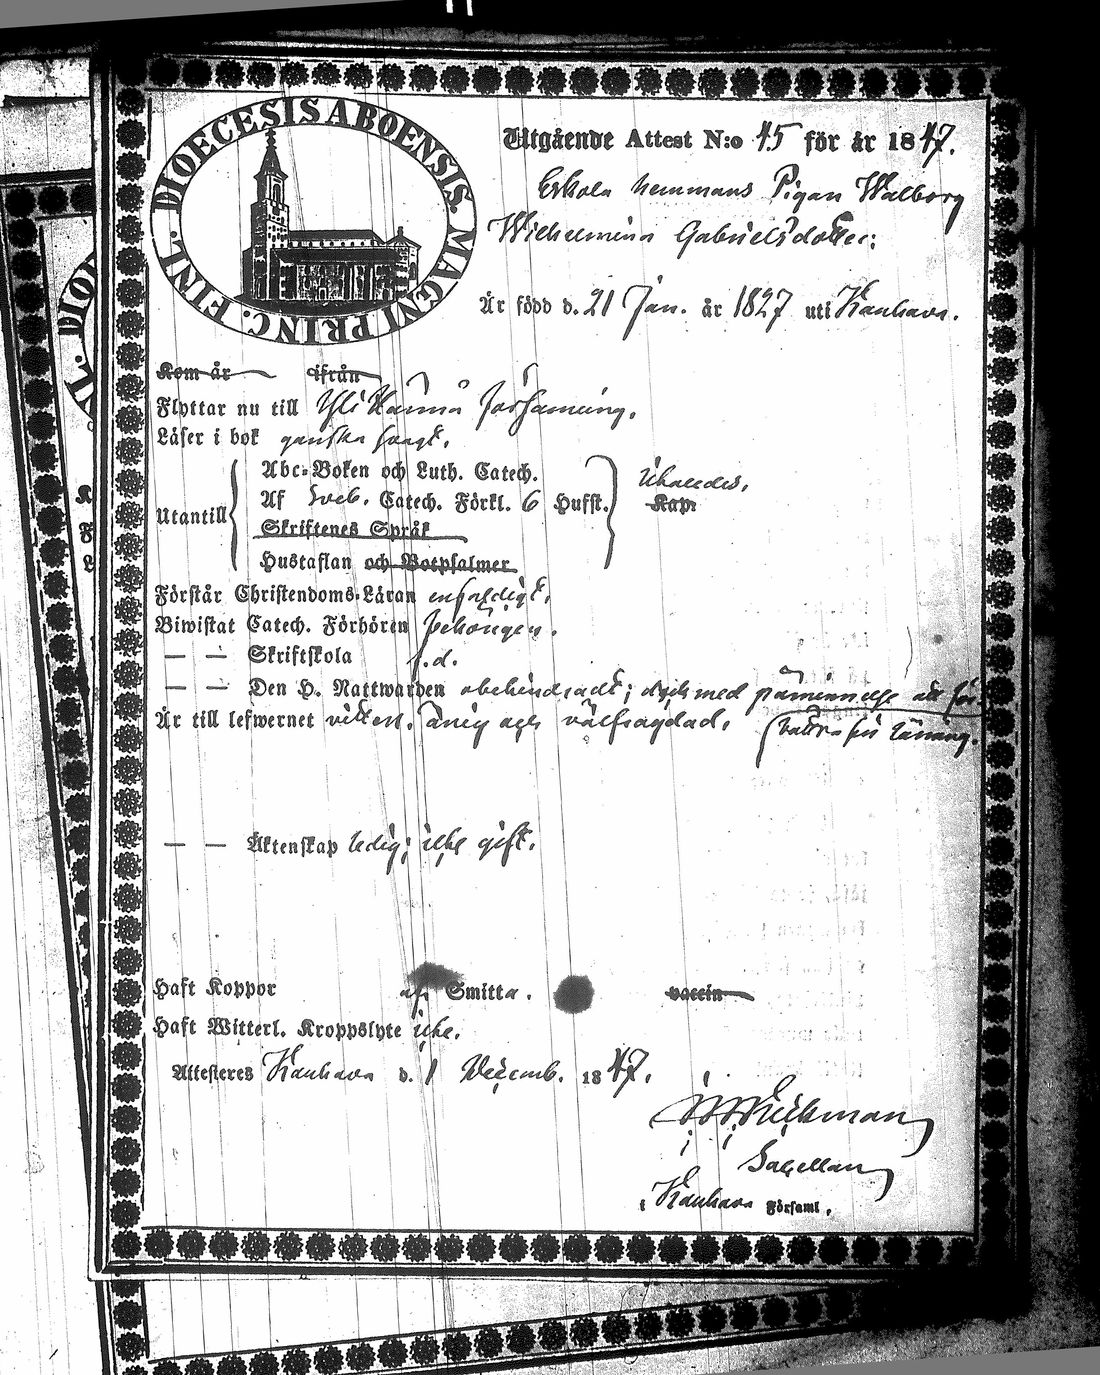 DIOECESIS ABOENSIS. MAGNI PRINC. FINL.
Utgående Attest N:o 45 för år 1847.
Eskola hemmans Pigan Walborg
Wilhelmina Gabrielsdotter:
Är född d. 21 Jan. år 1827 uti Kauhava.
Kom år ifrån
Flyttar nu till Yli Härmä församling.
Läser i bok ganska svagt.
Abc-Boken och Luth. Catech.
Af Sveb. Catech. Förkl. 6 Hufst. Kap.
Utantill
Skriftenes Språk
Hustaflan och Botpsalmer
Förstår Christendoms-Läran enfaldigt.
Biwistat Catech. Förhören behörigen.
— — Skriftskola s.d.
— — Den H. Nattwarden obehindradt; dock med påminnelse att för-
Är till lefwernet och välfrägdad. bättra sin läsning.
— — Äktenskap ledig; icke gift.
Haft Koppor af Smitta. vaccin
Haft Witterl. Kroppslyte icke.
Attesteres Kauhava d. 1 Decemb. 1847.
Capellan
i Kauhava Församl.